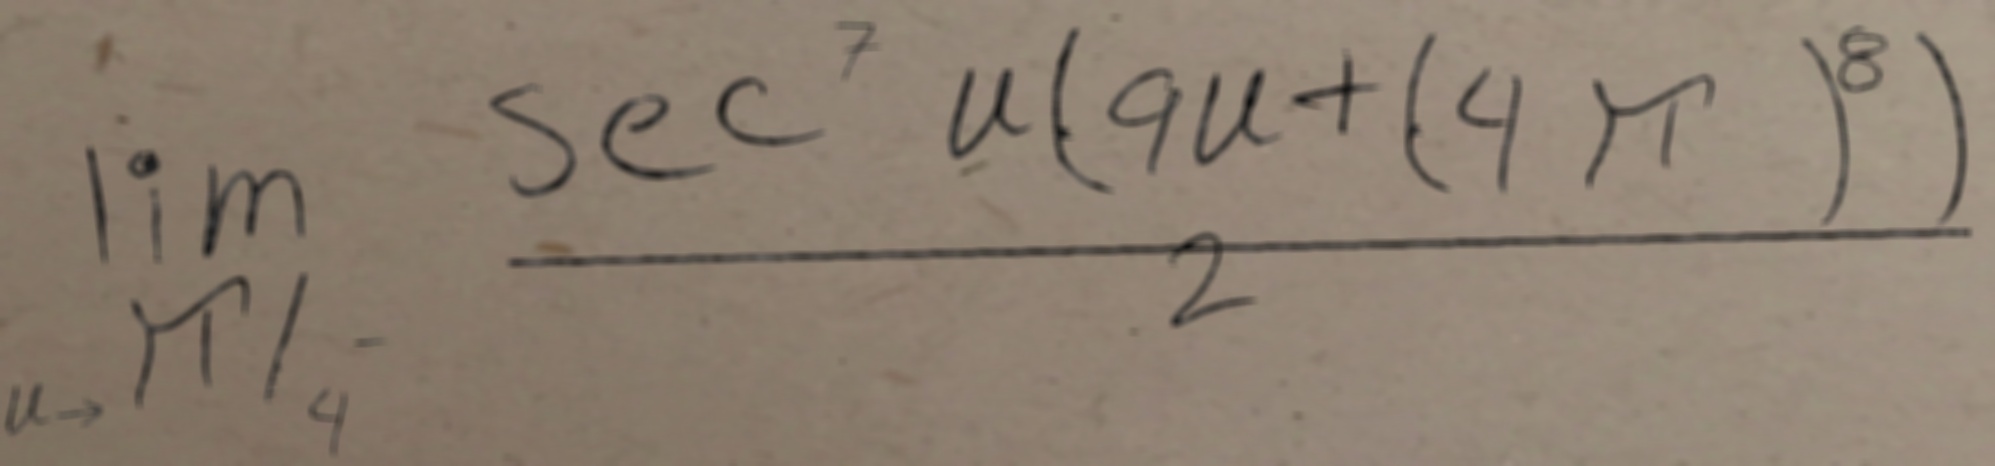 lim_{u→π/4^-} \frac{sec^7 u(9u+(4π)^8)}{2}